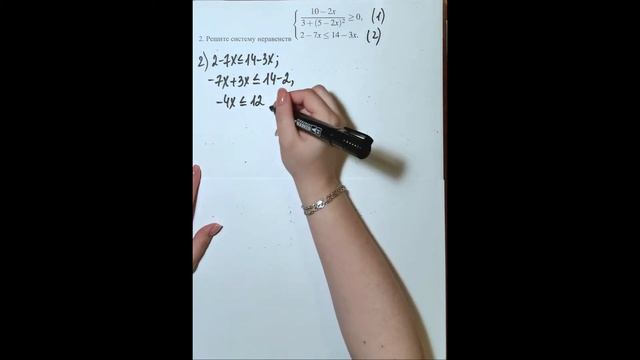 2. Решите систему неравенств { 10 − 2x / 3 + (5 − 2x)² ≥ 0, (1)
2 − 7x ≤ 14 − 3x. (2)
2) 2-7x≤14-3x;
-7x+3x ≤ 14-2,
-4x ≤ 12